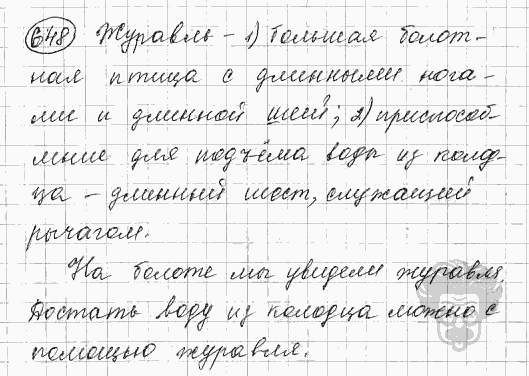 648 Журавль - 1) большая болот-
ная птица с длинными нога-
ми и длинной шеей; 2) приспособ-
ление для подъёма воды из колод-
ца - длинный шест, служащий
рычагом.
На болоте мы увидели журавля.
Достать воду из колодца можно с
помощью журавля.